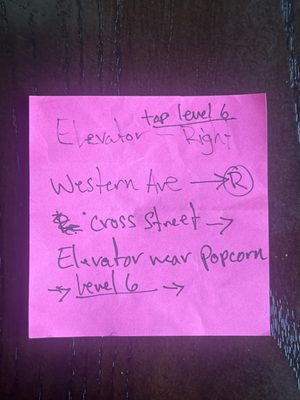 top level 6
Elevator - Right
Western Ave → R
cross street →
Elevator near Popcorn
→ Level 6 →